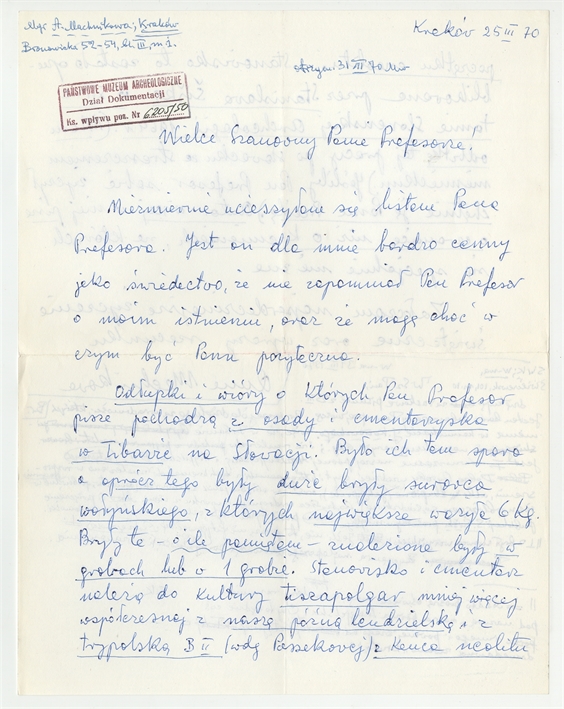 Mgr A. Machnikowa; Kraków
Bronowicka 52-54, kl. III, m 1.
Kraków 25 III 70
31 III 70
PAŃSTWOWE MUZEUM ARCHEOLOGICZNE
Dział Dokumentacji
Ks. wpływu poz. Nr 6205/50
Wielce Szanowny Panie Profesorze!
Niezmiernie ucieszyłam się listem Pana
Profesora. Jest on dla mnie bardzo cenny
jako świadectwo, że nie zapomniał Pan Profesor
o moim istnieniu, oraz że mogę choć w
czym być Panu pożyteczna.
Odłupki i wióry o których Pan Profesor
pisze pochodzą z osady i cmentarzyska
w Tibavie na Słowacji. Było ich tam sporo
a oprócz tego były duże bryły surowca
wołyńskiego, z których największa ważyła 6 kg.
Bryły te - o ile pamiętam - znalezione były w
grobach lub w 1 grobie. Stanowisko i cmentarz
należą do kultury tiszapolgar mniej więcej
współczesnej z naszą późną lendzielską i z
trypolską B II (wdg Passekowej) z końca neolitu